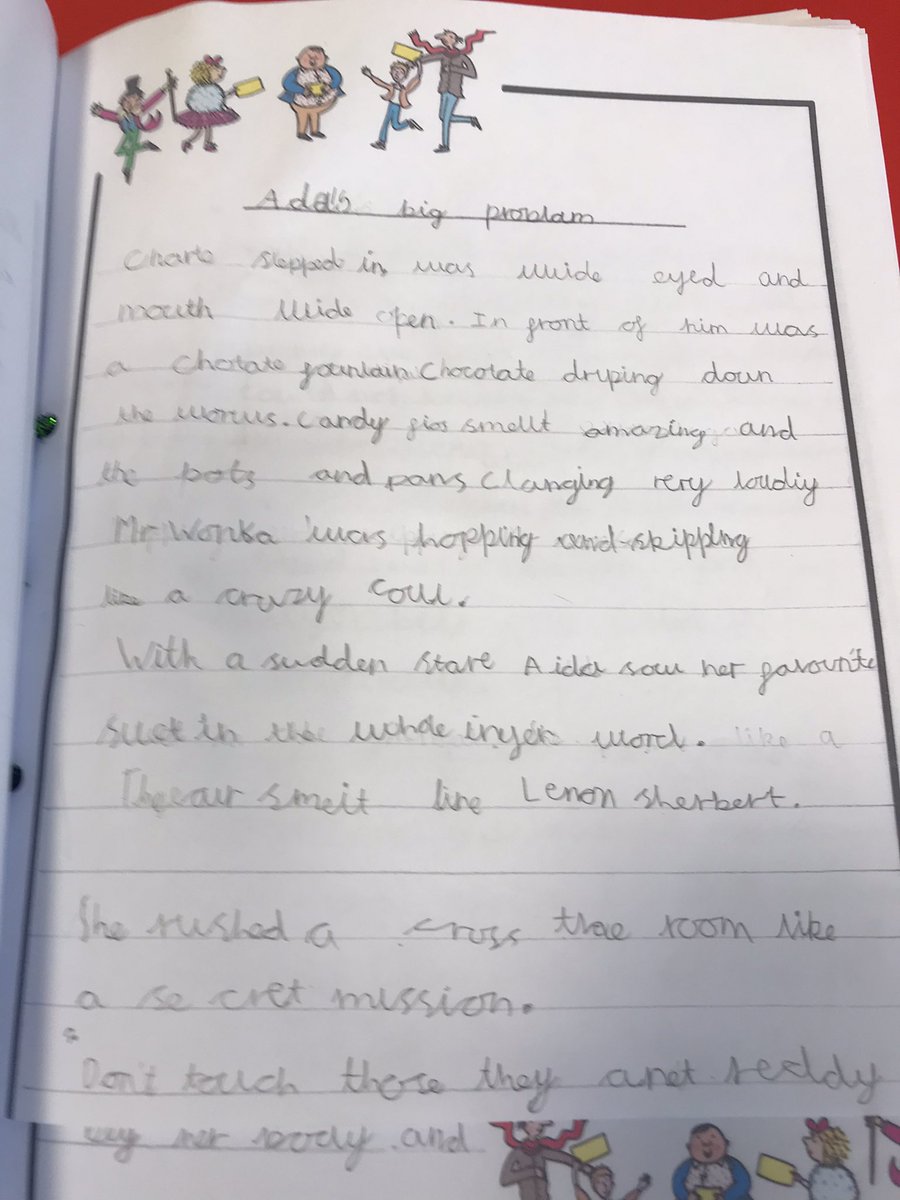 Ada's big problam
Charte stepped in was wide eyed and
mouth wide open. In front of him was
a Chotate fountain. Chocolate druping down
the worus. Candy gios smelt amazing and
the bots and pans clanging very loudiy
Mr Wonka was hopping and skippling
like a crazy cow.
With a sudden stare Aida saw her favourite
in the word. like a
The air smelt like Lenon sherbert.
She rushed a cross thae room like
a se cret mission.
Don't touch those they arnet reddy
her body and